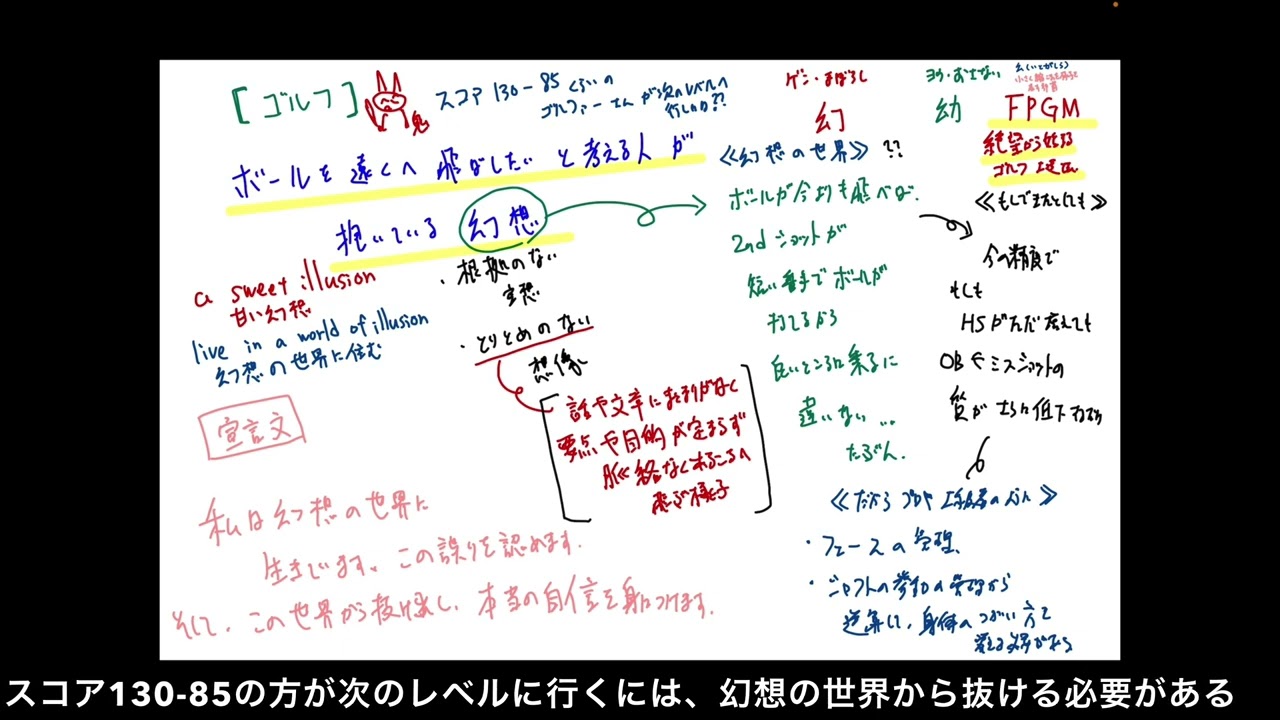 [ゴルフ]
鬼
スコア 130-85くらいの
ゴルファーさんが次のレベルへ
行くには??
ボールを遠くへ飛ばしたいと考える人が
抱いている幻想
a sweet illusion
甘い幻想
live in a world of illusion
幻想の世界に住む
・根拠のない
空想
・とりとめのない
想像
話や文章にまとまりがなく
要点や目的が定まらず
脈絡なくあちこちへ
飛ぶ様子
宣言文
私は幻想の世界に
生きています。この誤りを認めます。
そして、この世界から抜け出し、本当の自信を身につけます。
ゲン・まぼろし
幻
《幻想の世界》??
ボールが今よりも飛べば、
2ndショットが
短い番手でボールが
打てるから
良いところに乗るに
違いない...
たぶん.
ヨウ・おさない
幼
FPGM
絶望から始る
ゴルフ
《もしできたとしても》
今の精度で
もしも
HSがただ
OBやミスショットの
質がさらに低下
《だからプロや上級者の人は》
・フェースの管理、
・シャフトの挙動の管理から
逆算して、身体のつかい方を
スコア130-85の方が次のレベルに行くには、幻想の世界から抜ける必要がある